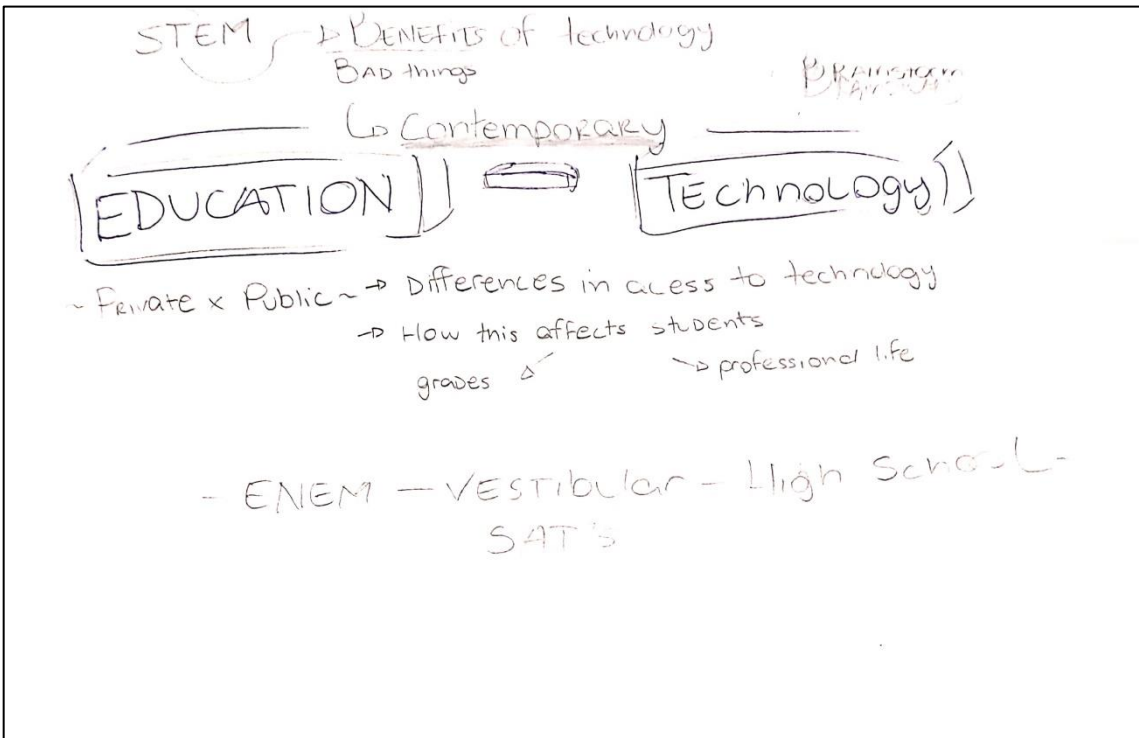 STEM → BENEFITS of technology
BAD things
BRAINSTORM
↳ Contemporary
EDUCATION TEchnology
~ Private x Public ~ → Differences in acess to technology
→ How this affects students
grades professional life
- ENEM - VESTibular - High School -
SAT's